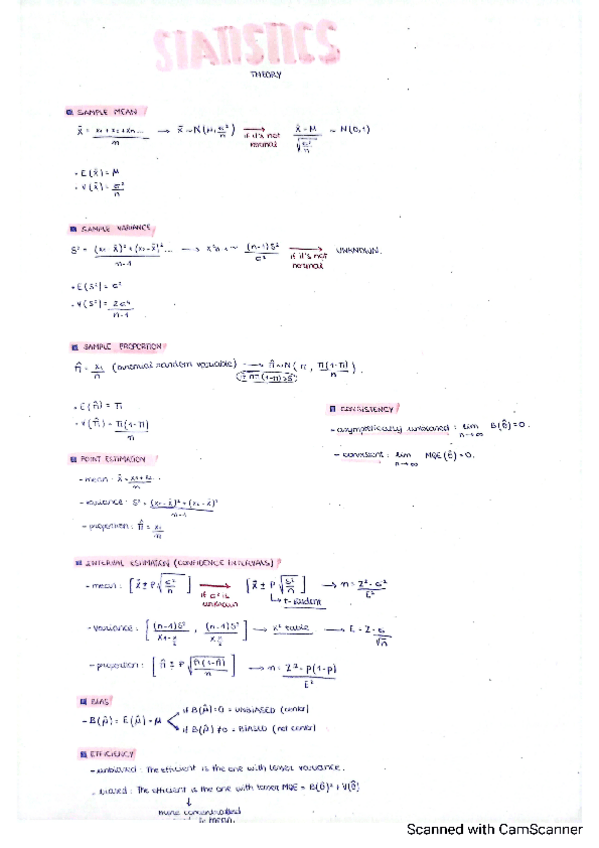 STATISTICS
THEORY
SAMPLE MEAN
X̄ = x₁+x₂+xₙ... / n → X̄ ~ N(μ, σ²/n) → if it's not normal X̄-μ / √(σ²/n) ~ N(0,1)
- E(X̄) = μ
- V(X̄) = σ²/n
SAMPLE VARIANCE
S² = (x₁-X̄)² + (x₂-X̄)²... / n-1 → ~ (n-1)S² / σ² → if it's not normal UNKNOWN.
- E(S²) = σ²
- V(S²) = 2σ⁴ / n-1
SAMPLE PROPORTION
π̂ = x₁/n random variable) → π̂ ~ N(π, π(1-π)/n).
- E(π̂) = π
- V(π̂) = π(1-π) / n
CONSISTENCY
- asymptotically unbiased: lim n→∞ B(θ̂)=0.
- consistent: lim n→∞ MQE(θ̂)=0.
POINT ESTIMATION
- mean: X̄ = x₁+x₂... / n
- variance: S² = (x₁-X̄)² + (x₂-X̄)² / n-1
- proportion: π̂ = x₁/n
INTERVAL ESTIMATION (CONFIDENCE INTERVALS)
- mean: [X̄ ± P√(σ²/n)] → if σ² is unknown [X̄ ± P√(S²/n)] → n = Z²·σ² / E²
t-student
- variance: [(n-1)S² / , (n-1)S² / ] → x² table → E = Z·σ/√n
- proportion: [π̂ ± P√(π̂(1-π̂)/n)] → n = Z²·P(1-P) / E²
BIAS
- B(μ̂) = E(μ̂) - μ
if B(μ̂)=0 = UNBIASED (center)
if B(μ̂)≠0 = BIASED (not center)
EFFICIENCY
- unbiased: The efficient is the one with lesser variance.
- biased: The efficient is the one with lesser MQE = B(θ̂)² + V(θ̂)
↓
more concentrated
Scanned with CamScanner